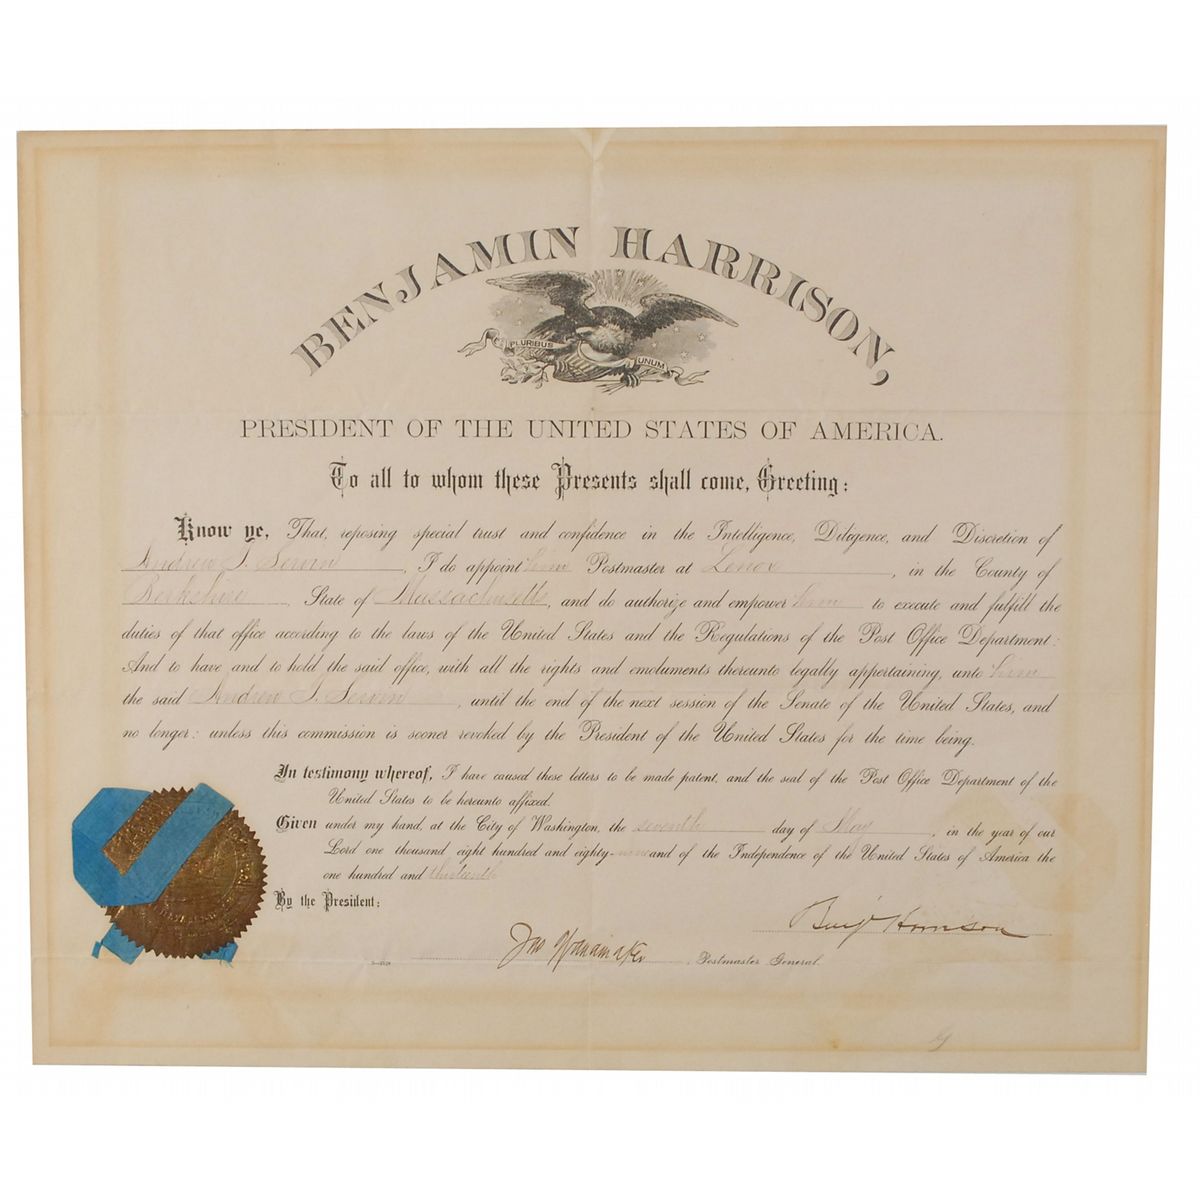 BENJAMIN HARRISON,
PLURIBUS UNUM
PRESIDENT OF THE UNITED STATES OF AMERICA.
To all to whom these Presents shall come, Greeting:
Know ye, That, reposing special trust and confidence in the Intelligence, Diligence, and Discretion of
Andrew J. Servin, I do appoint him Postmaster at Lenox, in the County of
Berkshire, State of Massachusetts, and do authorize and empower him to execute and fulfill the
duties of that office according to the laws of the United States and the Regulations of the Post Office Department:
And to have and to hold the said office, with all the rights and emoluments thereunto legally appertaining, unto him
the said Andrew J. Servin, until the end of the next session of the Senate of the United States, and
no longer: unless this commission is sooner revoked by the President of the United States for the time being.
In testimony whereof, I have caused these letters to be made patent, and the seal of the Post Office Department of the
United States to be hereunto affixed.
Given under my hand, at the City of Washington, the seventh day of May, in the year of our
Lord one thousand eight hundred and eighty-nine and of the Independence of the United States of America the
one hundred and thirteenth
By the President:
Benj Harrison
Jno Wanamaker, Postmaster General.